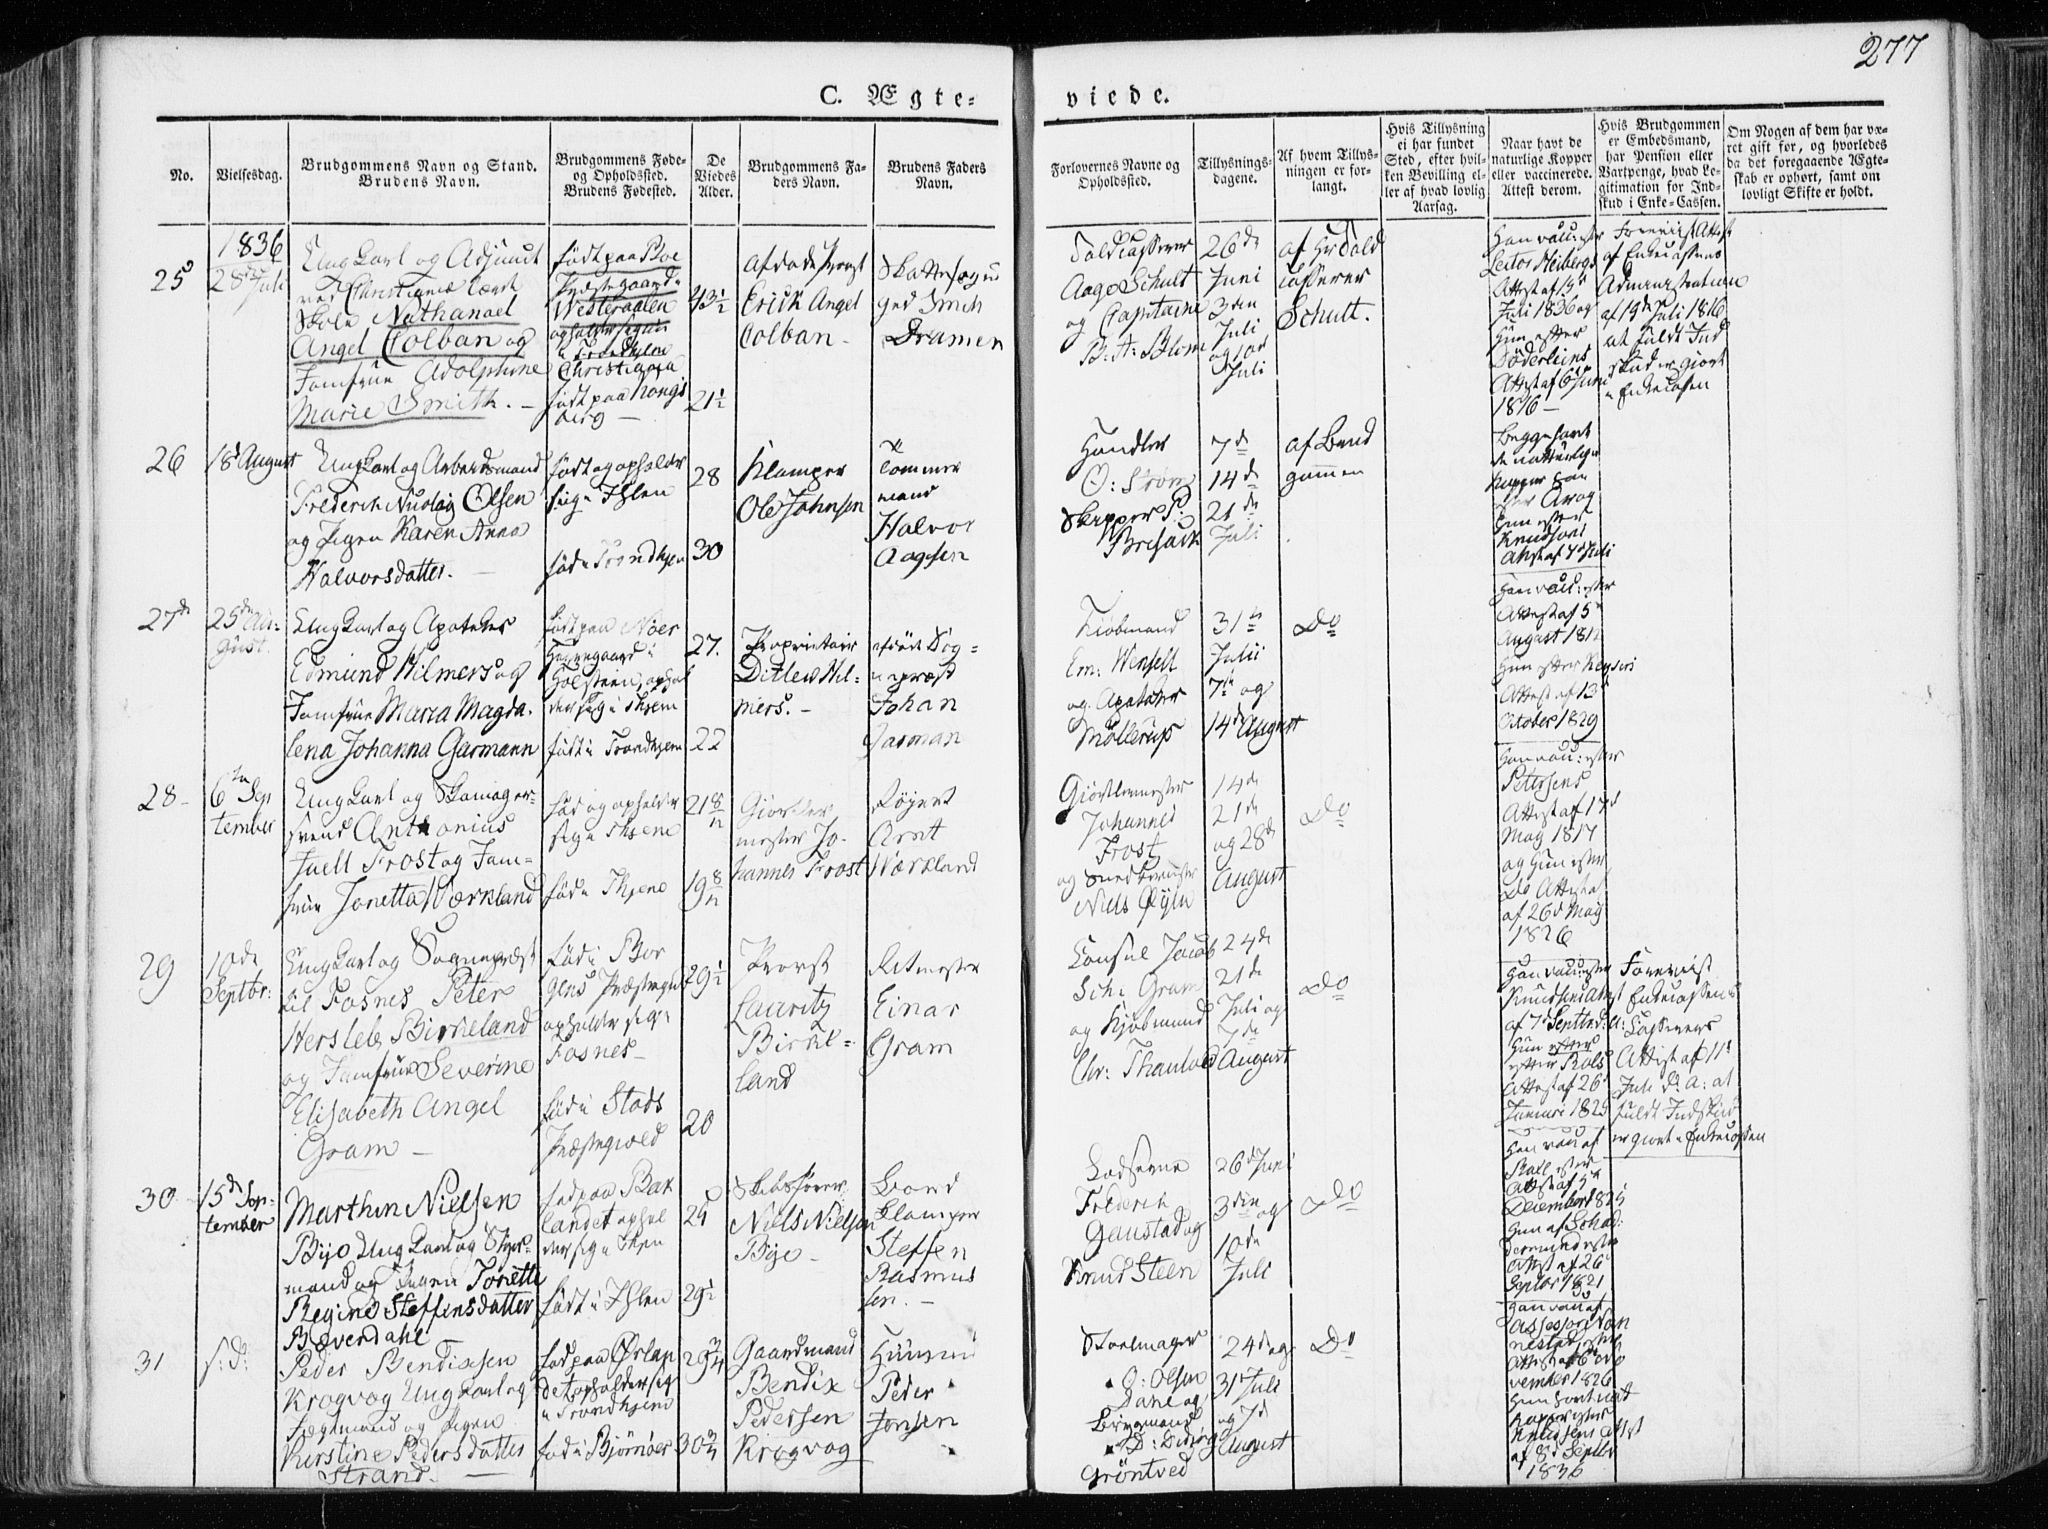 277
C. Ægte-
viede.
No.
Vielsesdag.
Brudgommens Navn og Stand.
Brudens Navn.
Brudgommens Føde-
og Opholdssted.
Brudens Fødested.
De
Viedes
Alder.
Brudgommens Fa-
ders Navn.
Brudens Faders
Navn.
Forlovernes Navne og
Opholdssted.
Tillysnings-
dagene.
Af hvem Tillys-
ningen er for-
langt.
Hvis Tillysning
ei har fundet
Sted, efter hvil-
ken Bevilling el-
ler af hvad lovlig
Aarsag.
Naar havt de
naturlige Kopper
eller vaccinerede.
Attest derom.
Hvis Brudgommen
er Embedsmand,
har Pension eller
Vartpenge, hvad Le-
gitimation for Ind-
skud i Enke-Cassen.
Om Nogen af dem har væ-
ret gift for, og hvorledes
da det foregaaende Ægte-
skab er ophørt, samt om
lovligt Skifte er holdt.
1836
25
28de Juli
Ung Karl og Adjunct
ved Christiania lærde
Skole Nathanael
Angel Colban og
Jomfrue Adolphine
Marie Smith. -
født paa Boe
Præstegaard
Westeraalen
opholder sig
Trondhjem
Christiania
født paa Kongs
berg -
43 1/2
21 1/2
Afdøde Provst
Erich Angel
Colban -
Skattefoged
Smith
Dramen
Toldcasserer
Aage Schult
og Capitaine
B: A: Blom
26de
Juni
3die
Juli
og 10de
Juli
af Hr Told
casserer
Schult.
Han vacc: efter
Heibergs
Attest af
Juli 1836 og
Hun efter
Döderleins
Attest af 6 Juni
1816 -
Foreviist Attest
af Enkecassens
Administration
af 19de Juli 1816
at fuldt Ind
skud er giort
i Enkecassen
26
18d August
Ung Karl og Arbeidsmand
Frederik Nicolai Olsen
og Pigen Karen Anna
Halvorsdatter. -
født og opholder
sig i Ihlen
fød i Trondhjem
28
30
Klamper
Ole Johnsen
Tømmer
mand
Halvor
Aagesen
Handler
O: Strøm
Skipper P:
7de
14de
21de
Juli
af Brud
gommen
Begge havt
de naturlige
Kopper
Hun efter
Knudsons
Attest af 7d Juli
27de
25de Au-
gust.
Ung Karl og Apotheker
Edmund Hilmers og
Jomfrue Maria Magda-
lena Johanna Garmann
født paa Noer
Herregaard i
Holsteen, ophol
der sig i Thjem
født i Trondhjem
27.
22
Proprietair
Ditlev Hil-
mers. -
afdøde Sog-
nepræst
Johan
Garman
Kiøbmand
Em: Wensell
og Apotheker
Møllerup
31te
Julii
7de og
14d August
Do
Han vacc: efter
Attest af 5te
August 1812
Hun efter Keysers
Attest af 13d
October 1829
28 -
6te Sep
tember
Ung Karl og Skomager-
svend Anthonius
Juell Frost og Jom-
frue Jonetta Wærkland
fød og opholder
sig i Thjem
fød i Thjem
21 8/12
19 8/12
Giørtler
mester Jo-
hannes Frost
Arnt
Wærkland
Giørtlermester
Johannes
Frost
og Snedkermester
Niels Øyen
14de
21de
og 28d
August
Do
Han vacc: efter
Petersens
Attest af 17d
May 1817
og Hun efter
Do Attest
af 26d May
1826
29
10de
Septbr:
Ung Karl og Sognepræst
til Fosnes Peter
Hersleb Birkeland
og Jomfrue Severine
Elisabeth Angel
Gram -
fød i Bor
gens Præstegield
opholder sig i
Fosnes -
fød i Stods
Præstegield
29 1/2
20
Provst
Lauritz
Birke-
land
Ritmester
Einar
Gram
Consul Jacob
Sch: Gram
og Kjøbmand
Chr: Thaulow
24de
21de
Juli og
7de
August
Do
Han vacc: efter
Knudsens Attest
af 7d Septbr: d: A:
Hun efter
Rols
Attest af 26d
Januari 1825
Foreviist
Enkecassens
Casserers
Attest af 11d
Juli d: A: at
fuldt Indskud
er giort i Enkecassen
30
15de Sep-
tember
Marthin Nielsen
Bye Ung Karl og Styr-
mand og Pigen Jonette
Regine Steffensdatter
Bæverdahl
fød paa Bak
landet ophol
der sig i Thjem
født i Ihlen
29 1/2
Skibsfører
Niels Nielsen
Bye -
Klamper
Steffen
Rasmus
sen. -
Lodserne
Frederik
Gaustad og
Knud Steen
26d Juni
3die og
10de
Juli
Do
Attest af 5te
December 1825
Attest af 26d
Septbr 1821
31
s: D:
Peder Bendixsen
Krogvog Ung Karl og
Jægtmand og Pigen
Kirstine Pedersdatter
Strand. -
fød paa Ørlan
det opholder sig
i Trondhjem
fød i Bjørnøer
29 3/4
30 3/4
Gaardmand
Bendix
Pedersen
Krogvog
Huusmd
Peder
Jonsen
Stoelmager
O: Olsen
Dahl og
Grøntved
24de og
31 Juli
og 7d
August
Do
Attest af 6te No
vember 1826
Hun havt nat:
Kopper efter
Knudsens Attest
af 8d Septbr
1836